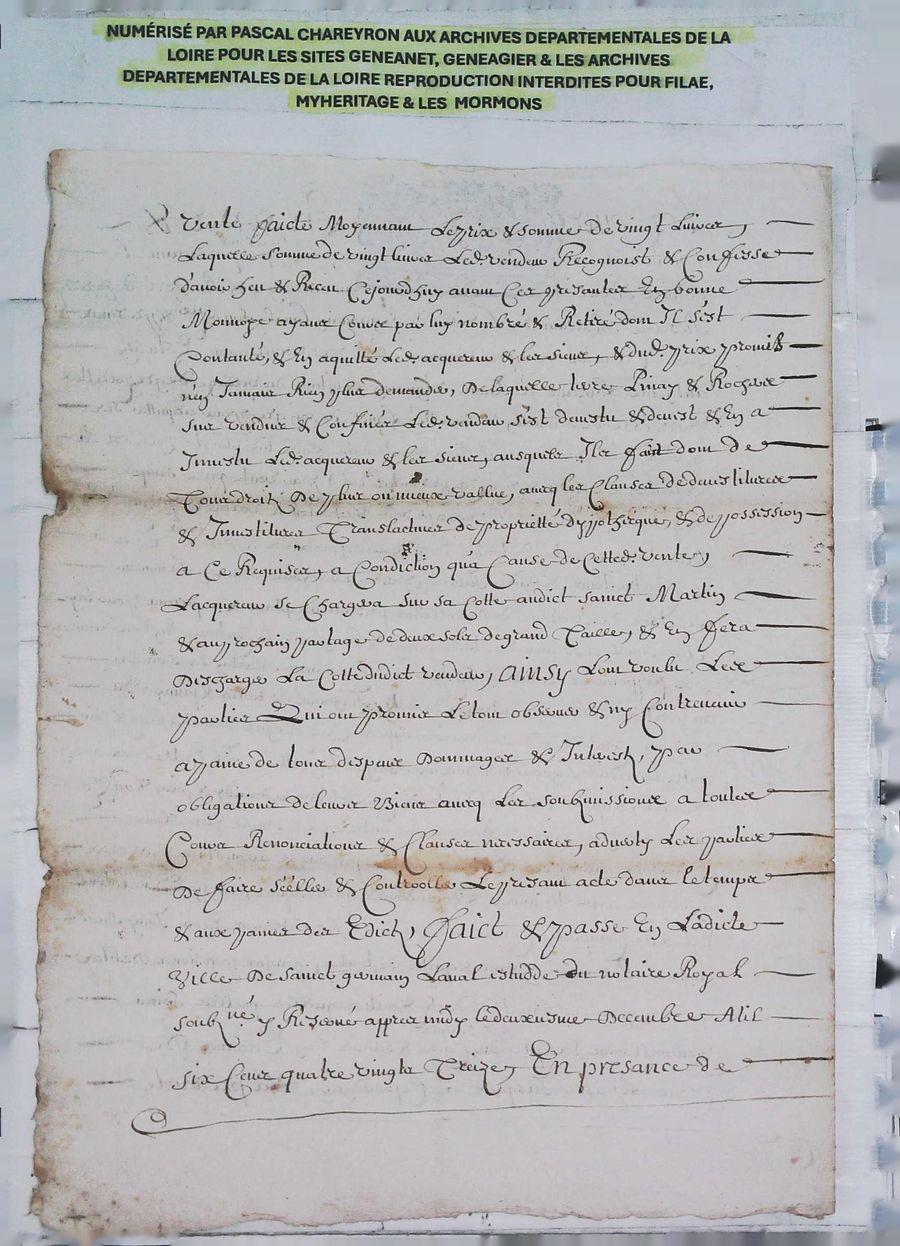 NUMÉRISÉ PAR PASCAL CHAREYRON AUX ARCHIVES DEPARTEMENTALES DE LA
LOIRE POUR LES SITES GENEANET, GENEAGIER & LES ARCHIVES
DEPARTEMENTALES DE LA LOIRE REPRODUCTION INTERDITES POUR FILAE,
MYHERITAGE & LES MORMONS
vente faicte Moyennant Le prix & somme de vingt Livres,
Laquelle somme de vingt livres Led. vendeur Recognoist & Confesse
d'avoir heu & Receu Cejourdhuy avant Ces presantes En bonne
Monnoye ayant Cours par luy nombré & Retiré dont Il s'est
Contanté, & En aquitté Led. acquereur & les siens, & dud. prix promis
n'en Jamais Rien plus demander, De laquelle terre Pinay & Rochers
sus vendue & Confinée Led. vendeur s'est devestu & devest & En a
Jnvestu Led. acquereur & les siens, ausquels Il a fait dont de
Tous droits De plus ou mieux vallue, avecq les Clauses de devestitures
& Jnvestitures Translactives de proprietté d'ypotheque, & de possession
a Ce Requises, a Condiction qu'a Cause de Cetted. vente,
Lacquereur se Chargera sur sa Cotte audict sainct Martin
& au prochain partage de deux solz de grand Taille, & En fera
Descharger La Cotte dudict vendeur, Ainsy L'ont voulu Lesd.
parties Qui ont promis Le tout observer & n'y Contrevenir
a paine de tous despens Dommages & Interestz, par
obligations de leurs Biens avecq Les soubmissions a toutes
Cours Renonciations & Clauses necessaires, adverty Les parties
De faire séeller & Controoller Le presant acte dans le temps
& aux paines des Edicts, Faict & passe En Ladicte
Ville De sainct germain Laval estudde du notaire Royal
soubzné y Reservé appres midy le deuxiesme Decembre Mil
six Cens quatre vingts Treize, En presance de